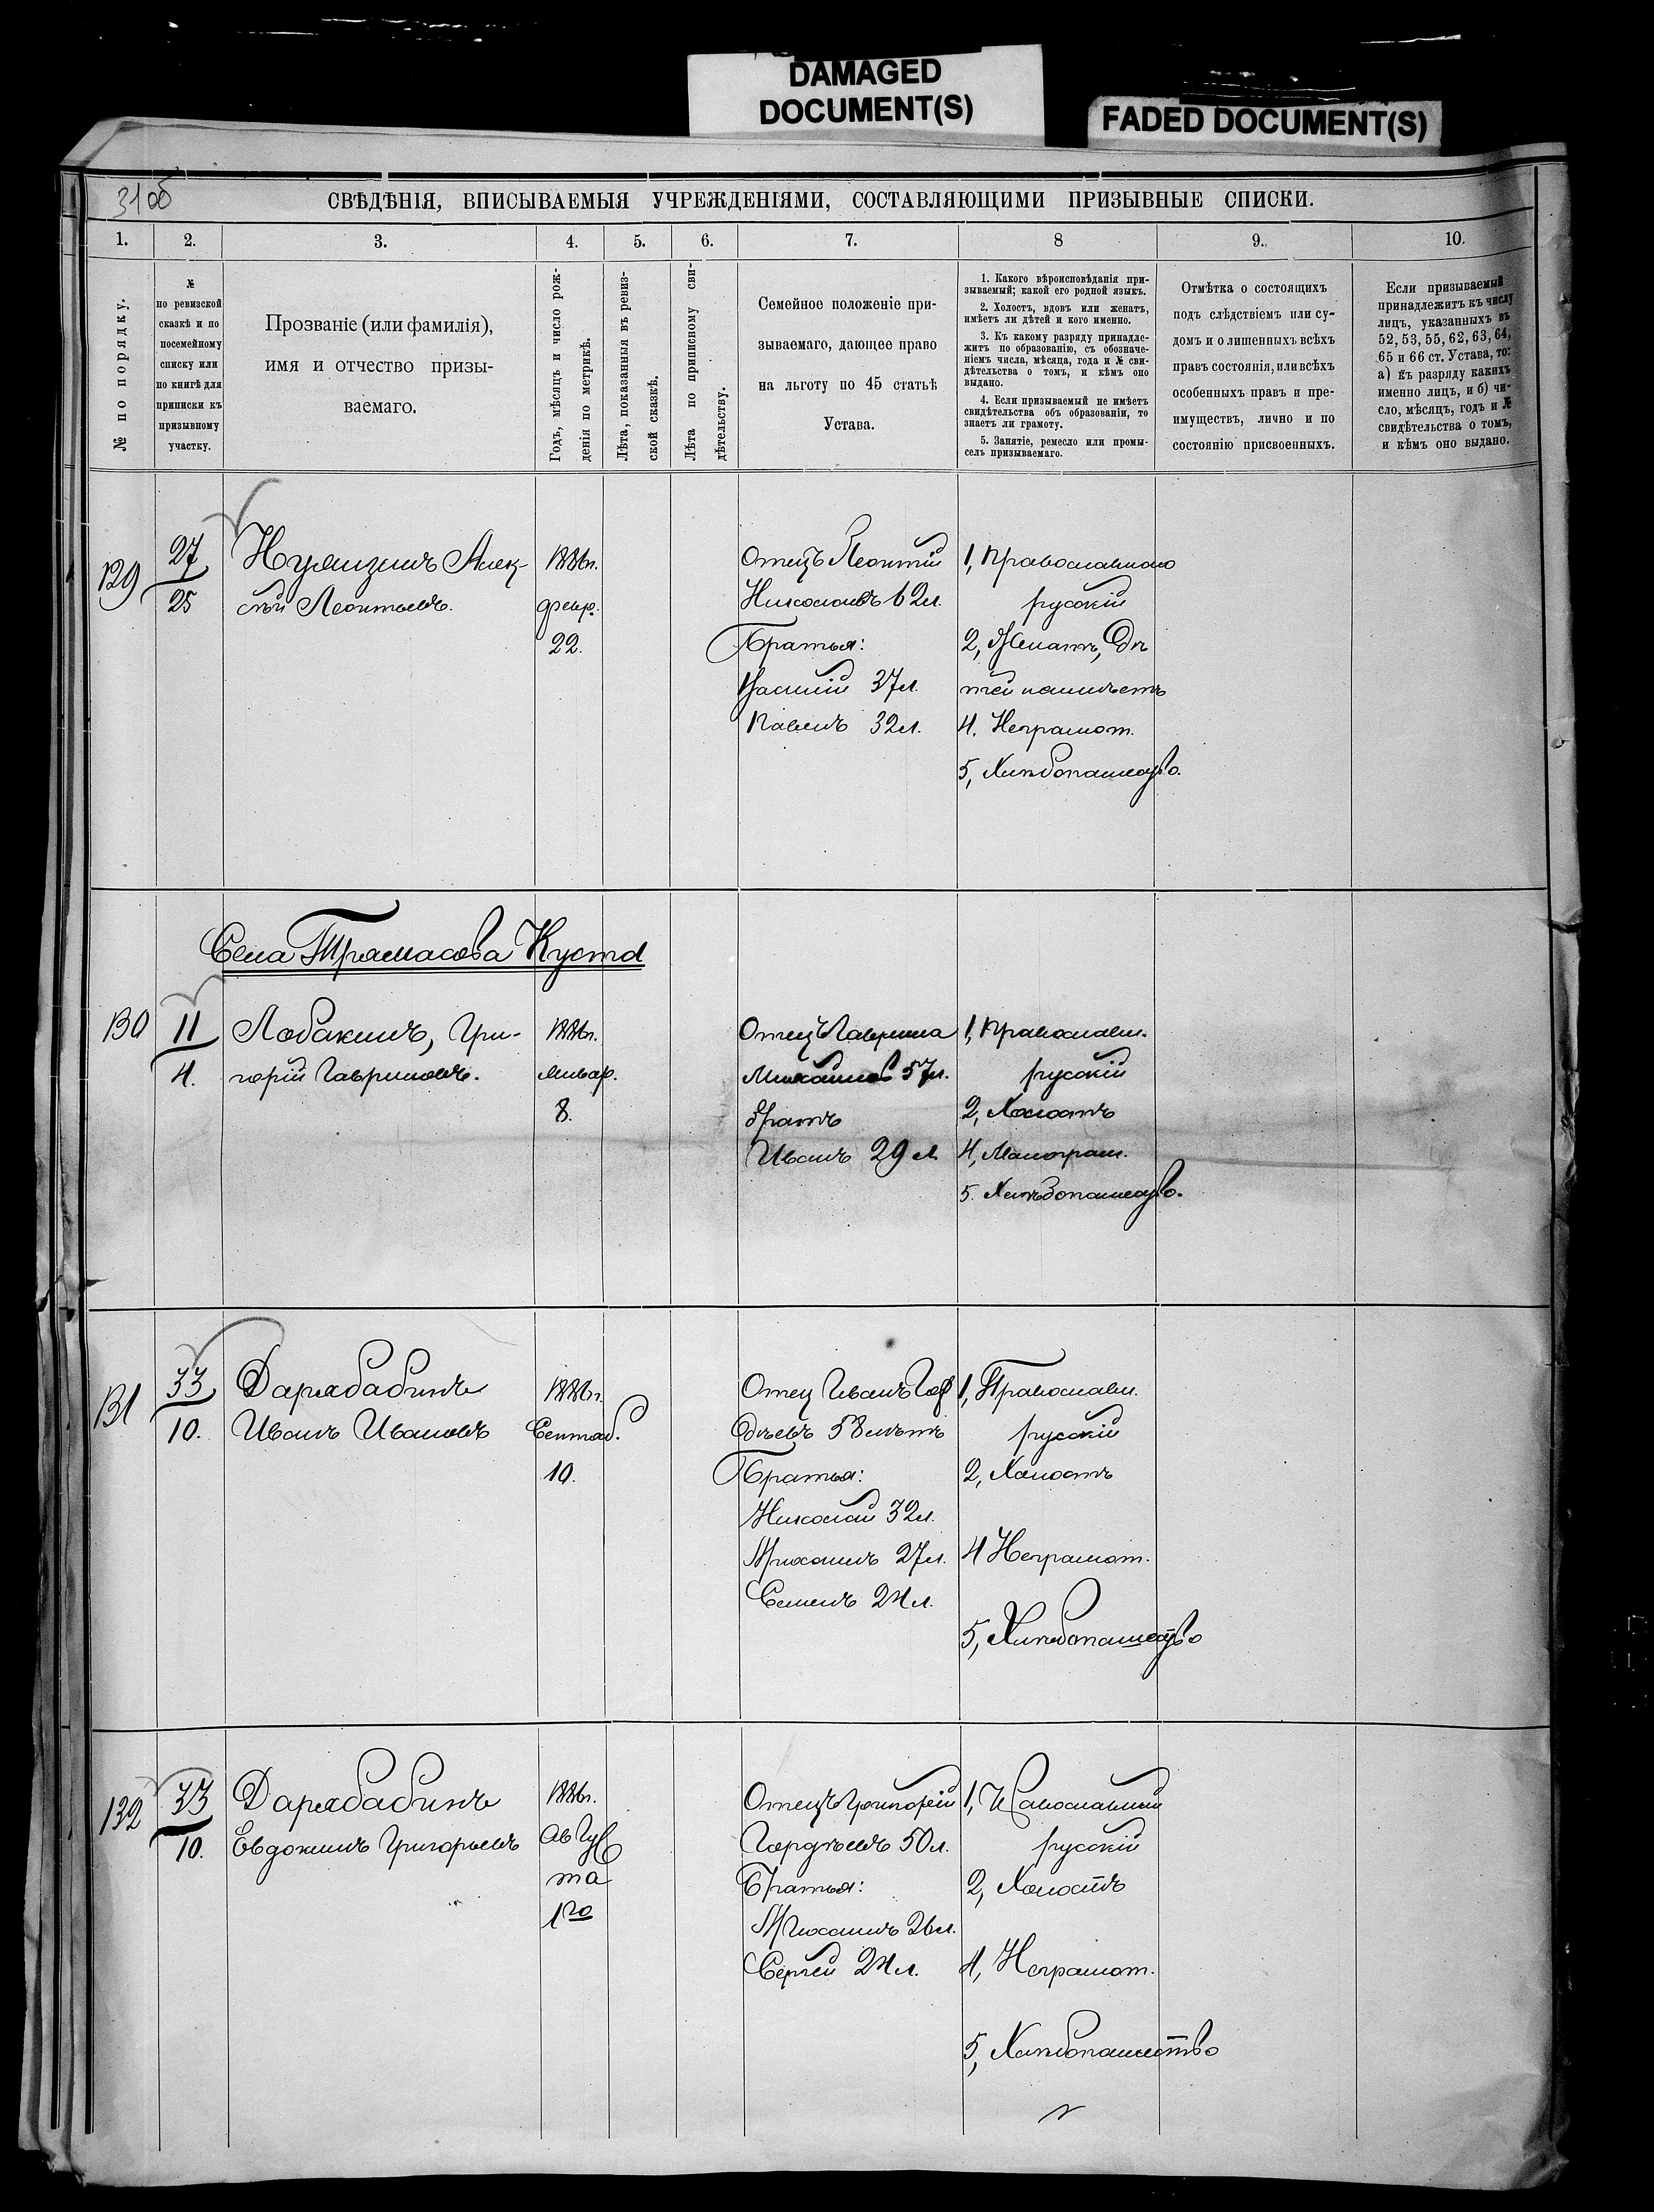 DAMAGED
DOCUMENT(S)
FADED DOCUMENT(S)
31об
СВѢДѢНІЯ, ВПИСЫВАЕМЫЯ УЧРЕЖДЕНІЯМИ, СОСТАВЛЯЮЩИМИ ПРИЗЫВНЫЕ СПИСКИ.
1. 2. 3. 4. 5. 6. 7. 8 9. 10.
№ по порядку.
№
по ревизской
сказкѣ и по
посемейному
списку или
по книгѣ для
приписки къ
призывному
участку.
Прозваніе (или фамилія),
имя и отчество призы-
ваемаго.
Годъ, мѣсяцъ и число рож-
денія по метрикѣ.
Лѣта, показанныя въ ревиз-
ской сказкѣ.
Лѣта по приписному сви-
дѣтельству.
Семейное положеніе при-
зываемаго, дающее право
на льготу по 45 статьѣ
Устава.
1. Какого вѣроисповѣданія при-
зываемый; какой его родной языкъ.
2. Холостъ, вдовъ или женатъ,
имѣетъ ли дѣтей и кого именно.
3. Къ какому разряду принадле-
житъ по образованію, съ обозначе-
ніемъ числа, мѣсяца, года и № сви-
дѣтельства о томъ, и кѣмъ оно
выдано.
4. Если призываемый не имѣетъ
свидѣтельства объ образованіи, то
знаетъ ли грамоту.
5. Занятіе, ремесло или промы-
селъ призываемаго.
Отмѣтка о состоящихъ
подъ слѣдствіемъ или су-
домъ и о лишенныхъ всѣхъ
правъ состоянія, или всѣхъ
особенныхъ правъ и пре-
имуществъ, лично и по
состоянію присвоенныхъ.
Если призываемый
принадлежитъ къ числу
лицъ, указанныхъ въ
52, 53, 55, 62, 63, 64,
65 и 66 ст. Устава, то:
а) къ разряду какихъ
именно лицъ, и б) чи-
сло, мѣсяцъ, годъ и №
свидѣтельства о томъ,
и кѣмъ оно выдано.
129
27
25
Нуянзинъ Алек-
сѣй Леонтьевъ.
1886г.
февр.
22.
Отецъ Леонтій
Николаевъ 62л.
Братья:
Василій 37л.
Павелъ 32л.
1, Православнаго
русскій
2, Женатъ, дѣ
тей неимѣетъ
4. Неграмот.
5, Хлѣбопашество.
Села Трамасова Куста
130
11
4.
Лобакинъ, Гри-
горій Гавриловъ.
1886г.
Январ.
8.
Отецъ Гаврила
Михайлов 57л.
Братъ
Иванъ 29л
1, Православн.
русскій
2, Холостъ
4, Малограм.
5. Хлѣбопашество.
131
33
10.
Дарябабинъ
Иванъ Ивановъ
1886г.
Сентяб.
10.
Отец Иванъ Гор
дѣевъ 58 лѣтъ
Братья:
Николай 32л.
Михаилъ 27л.
Семенъ 24л.
1, Православн.
русскій
2, Холостъ
4 Неграмот.
5, Хлѣбопашество
132
33
10.
Дарябабинъ
Евдокимъ Григорьевъ
1886г.
Авгус
та
1го
Отецъ Григорій
Гордѣевъ 50л.
Братья:
Михаилъ 26л.
Сергѣй 24л.
1, Православный
русскій
2, Холостъ
4, Неграмот.
5, Хлѣбопашество